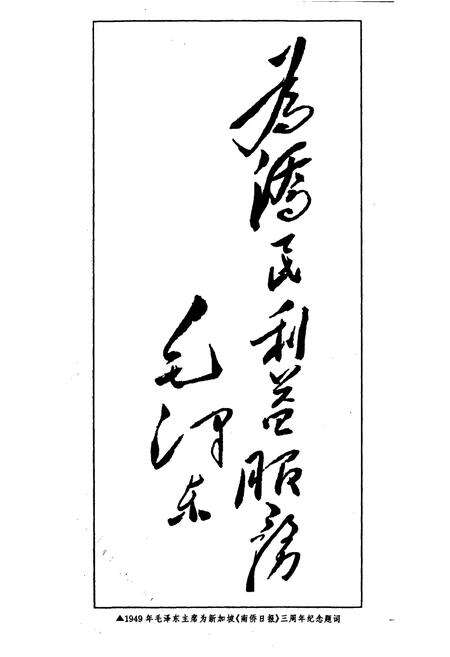 為僑民利益服務
毛泽东
▲1949年毛泽东主席为新加坡《南侨日报》三周年纪念题词